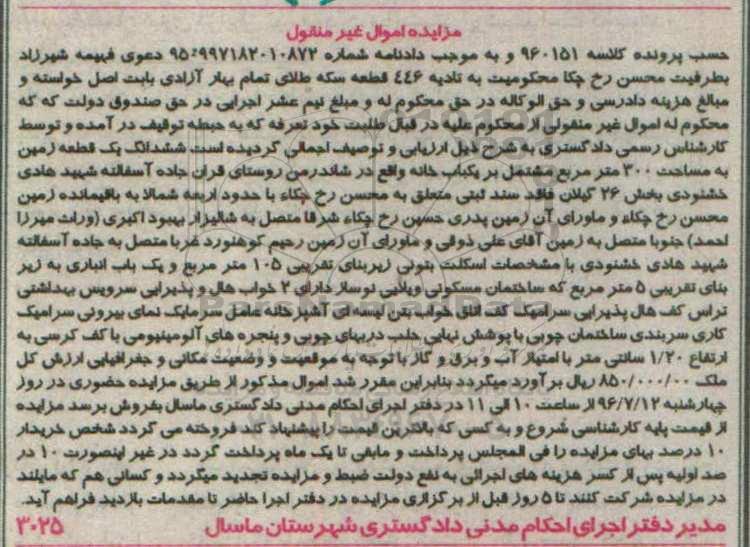 مزایده اموال غیر منقول
حسب پرونده کلاسه ۹۶۰۱۵۱ و به موجب دادنامه شماره ۹۵۰۹۹۷۱۸۲۰۱۰۸۷۲ دعوی فهیمه شیرزاد
بطرفیت محسن رخ چکا محکومیت به تادیه ۴۴۶ قطعه سکه طلای تمام بهار آزادی بابت اصل خواسته و
مبالغ هزینه دادرسی و حق الوکاله در حق محکوم له و مبلغ نیم عشر اجرایی در حق صندوق دولت که که
محکوم له اموال غیر منقولی از محکوم علیه در قبال طلبت خود تعرفه که به حیطه توقیف در آمده و توسط
کارشناس رسمی دادگستری به شرح ذیل ارزیابی و توصیف اجمالی گردیده است ششدانگ یک قطعه زمین
به مساحت ۳۰۰ متر مربع مشتمل بر یکباب خانه واقع در شاندرمن روستای قران جاده آسفالته شهید هادی
خشنودی بخش ۲۶ گیلان فاقد سند ثبتی متعلق به محسن رخ چکاء با حدود اربعه شمالا به باقیمانده زمین
محسن رخ چکاء و ماورای آن زمین پدری حسین رخ چکاء شرقا متصل به شالیزار بهبود اکبری (وراث میرزا
احمد) جنوبا متصل به زمین آقای علی ذوقی و ماورای آن زمین رحیم کوهنورد غربا متصل به جاده آسفالته
شهید هادی خشنودی با مشخصات اسکلت بتونی زیربنای تقریبی ۱۰۵ متر مربع و یک باب انباری به زیر
بنای تقریبی ۵ متر مربع که ساختمان مسکونی ویلایی نوساز دارای ۲ خواب هال و پذیرایی سرویس بهداشتی
تراس کف هال پذیرایی سرامیک کف اتاق خواب بتن لیسه ای آشپزخانه عامل سرمایک نمای بیرونی سرامیک
کاری سربندی ساختمان چوبی با پوشش نهایی حلب دربهای چوبی و پنجره های آلومینیومی با کف کرسی به
ارتفاع ۱/۲۰ سانتی متر با امتیاز آب و برق و گاز با توجه به موقعیت و وضعیت مکانی و جغرافیایی ارزش کل
ملک ۸۵۰/۰۰۰/۰۰ ریال برآورد میگردد بنابراین مقرر شد اموال مذکور از طریق مزایده حضوری در روز
چهارشنبه ۹۶/۷/۱۲ از ساعت ۱۰ الی ۱۱ در دفتر اجرای احکام مدنی دادگستری ماسال بفروش برسد مزایده
از قیمت پایه کارشناسی شروع و به کسی که بالاترین قیمت را پیشنهاد کند فروخته می گردد شخص خریدار
۱۰ درصد بهای مزایده را فی المجلس پرداخت و مابقی تا یک ماه پرداخت گردد در غیر اینصورت ۱۰ در
صد اولیه پس از کسر هزینه های اجرائی به نفع دولت ضبط و مزایده تجدید میگردد و کسانی هم که مایلند
در مزایده شرکت کنند تا ۵ روز قبل از برگزاری مزایده در دفتر اجرا حاضر تا مقدمات بازدید فراهم آید.
مدیر دفتر اجرای احکام مدنی دادگستری شهرستان ماسال
۳۰۲۵
ParsNamadData